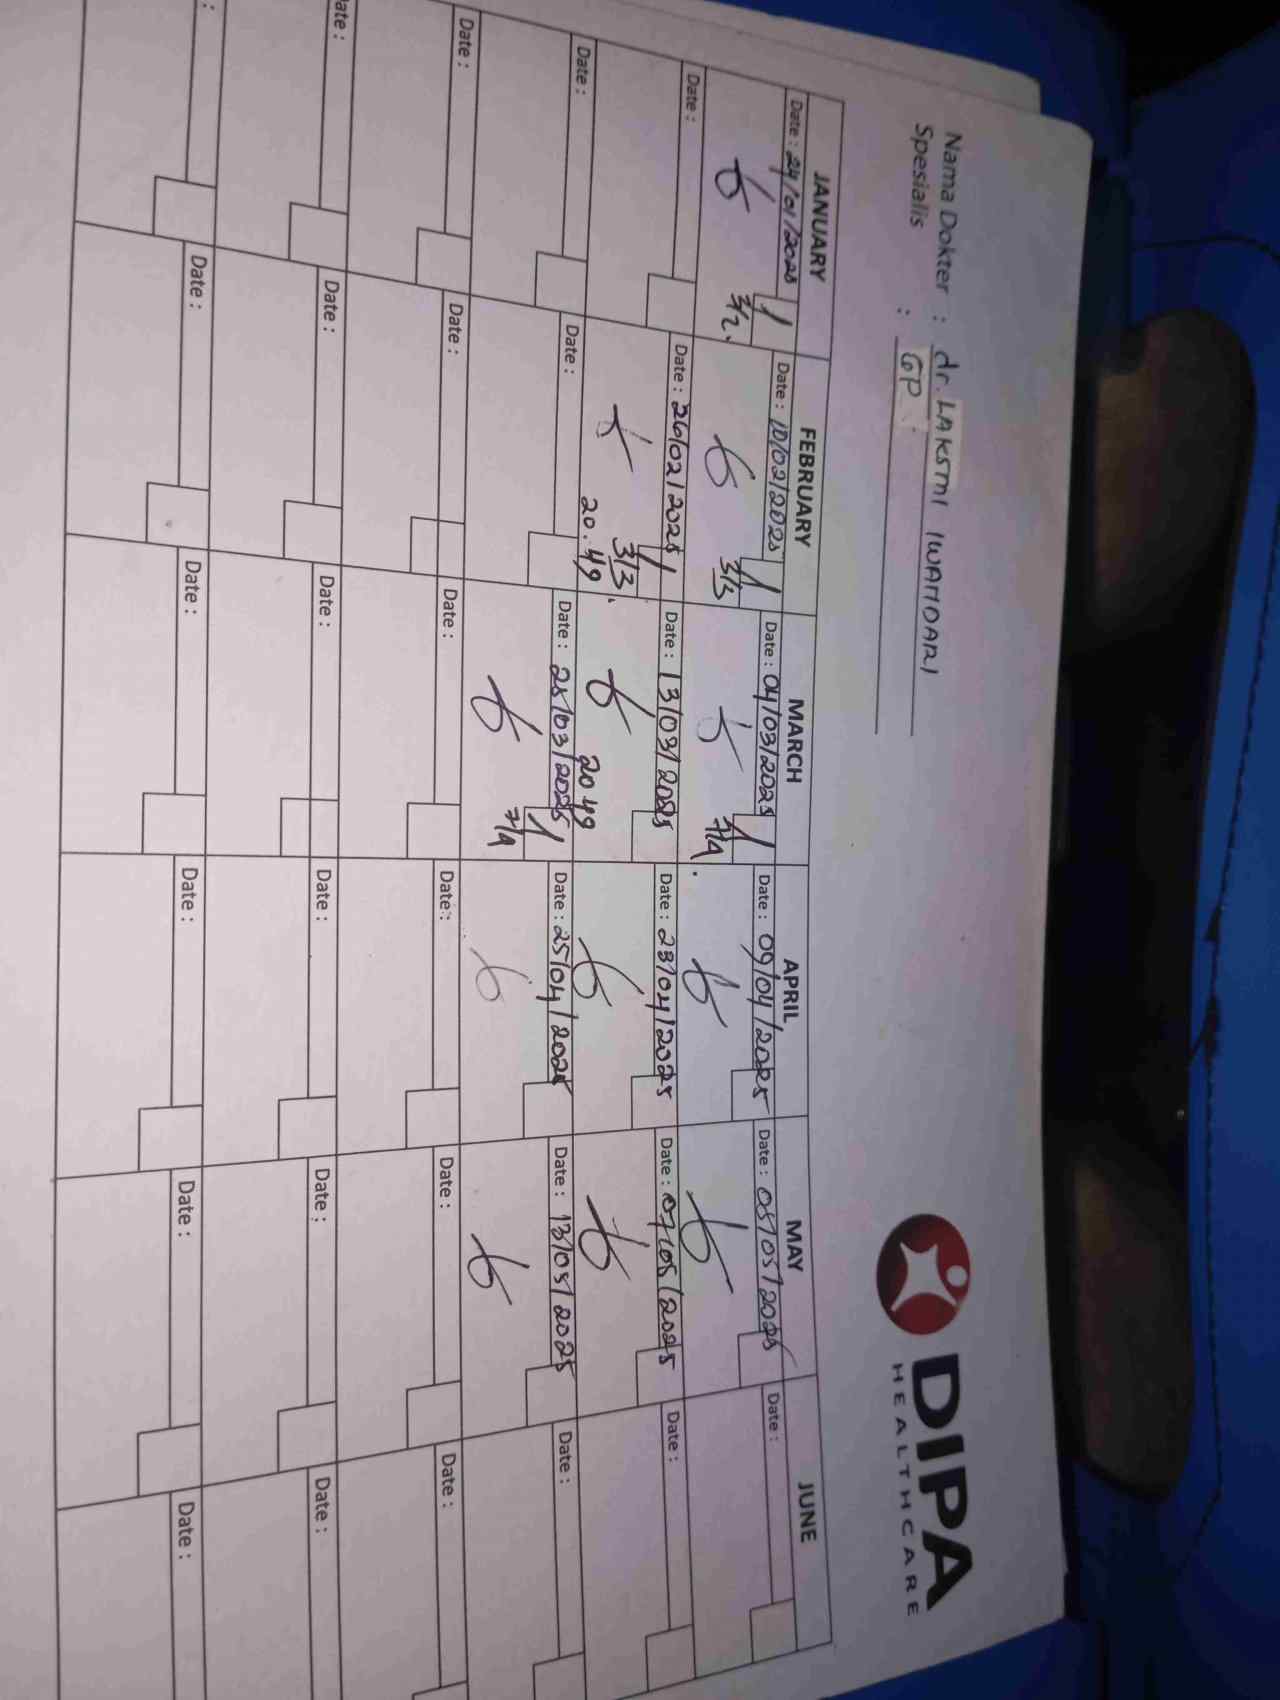 DIPA
HEALTHCARE
Nama Dokter : dr. LAKSMI IWANDARI
Spesialis : GP
JANUARY FEBRUARY MARCH APRIL MAY JUNE
Date : 24/01/2025 Date : 10/02/2025 Date : 04/03/2025 Date : 09/04/2025 Date : 05/05/2025 Date :
3/2. 3/3 7/4.
Date : Date : 26/02/2025 Date : 13/03/2025 Date : 23/04/2025 Date : 07/05/2025 Date :
3/3.
20.49 2049
Date : Date : Date : 25/03/2025 Date : 25/04/2025 Date : 13/05/2025 Date :
7/4
Date : Date : Date : Date : Date : Date :
Date : Date : Date : Date : Date : Date :
Date : Date : Date : Date : Date :